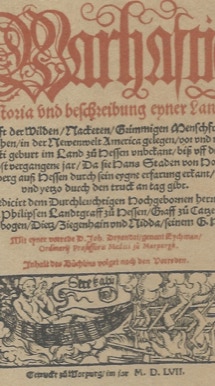 Warhaftig
storia vnd beschreibung eyner Lan
ft der Wilden/Nacketen/Grimmigen Menschf
ben/in der Newenwelt America gelegen/vor vnd n
ti geburt im Land zů Hessen vnbekant/biß vff d
st vergangene jar/Da sie Hans Staden von Ho
berg auß Hessen durch sein eygne erfarung erkant/
vnd yetzo durch den truck an tag gibt.
diciert dem Durchleuchtigen Hochgebornen herrn
Philipsen Landtgraff zů Hessen/Graff zů Catze
bogen/Dietz/Ziegenhain vnd Nidda/seinem G. H
Mit eyner vorrede D. Joh. Dryandri/genant Eychman/
Ordinarij Professoris Medici zů Marpurgk.
Inhalt des Büchlins volget nach den Vorreden.
Getruckt zů Marpurg/im jar M. D. LVII.